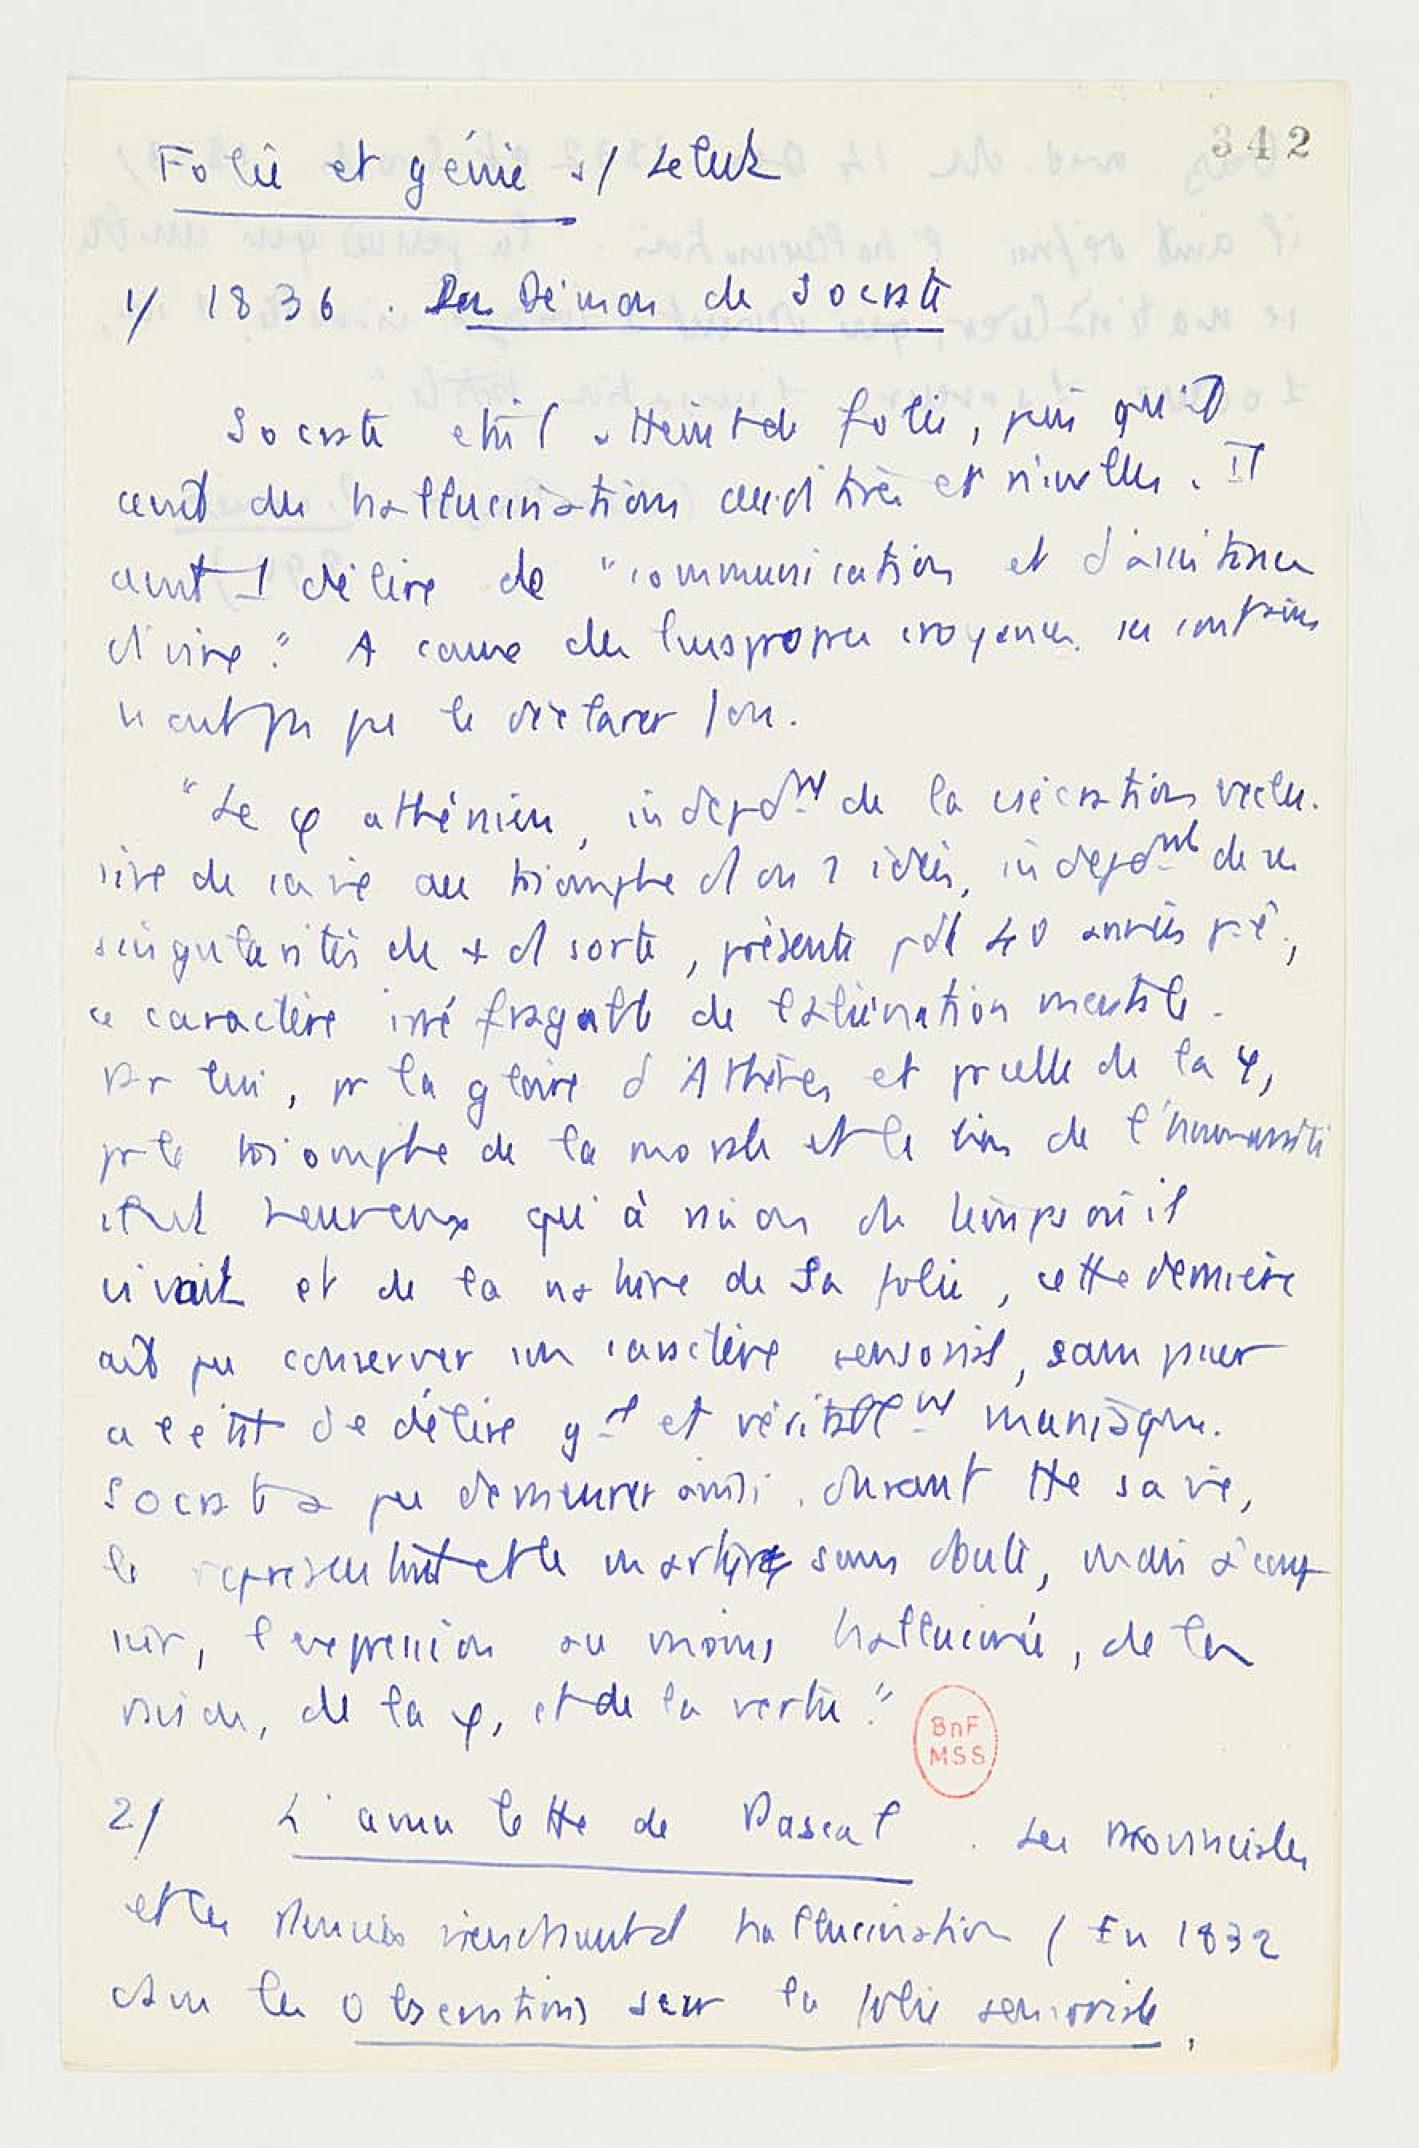 342
Folie et génie s/ Lelut
1/ 1836. Du Démon de Socrate
Socrate était atteint de folie, puisqu'il
avait des hallucinations auditives et visuelles. Il
avait 1 délire de "communication et d'assistance
divine." A cause de leurs propres croyances ses contemporains
n'ont pu le déclarer fou.
"Le φ athénien, indépdmt de la consécration exclu-
sive de sa vie au triomphe d'un ou 2 idées, indépdmt de ses
singularités de + d'1 sorte, présente pdt 40 années pê,
ce caractère irréfragable de l'aliénation mentale.
Pr lui, pr la gloire d'Athènes et pr celle de la φ,
pr le triomphe de la morale et le bien de l'humanité
il fut heureux qu'à raison du temps où il
vivait et de la nature de sa folie, cette dernière
ait pu conserver un caractère sensorial, sans passer
à l'état de délire gal et véritablemt maniaque.
Socrate a pu demeurer ainsi, durant tte sa vie,
le représentant et le martyre sans doute, mais à coup
sûr, l'expression au moins hallucinée, de la
raison, de la φ, et de la vertu."
BnF
MSS
2/ L'amulette de Pascal. Les Provinciales
et les Pensées hallucination (En 1832
dans les Observations sur la folie sensoriale,